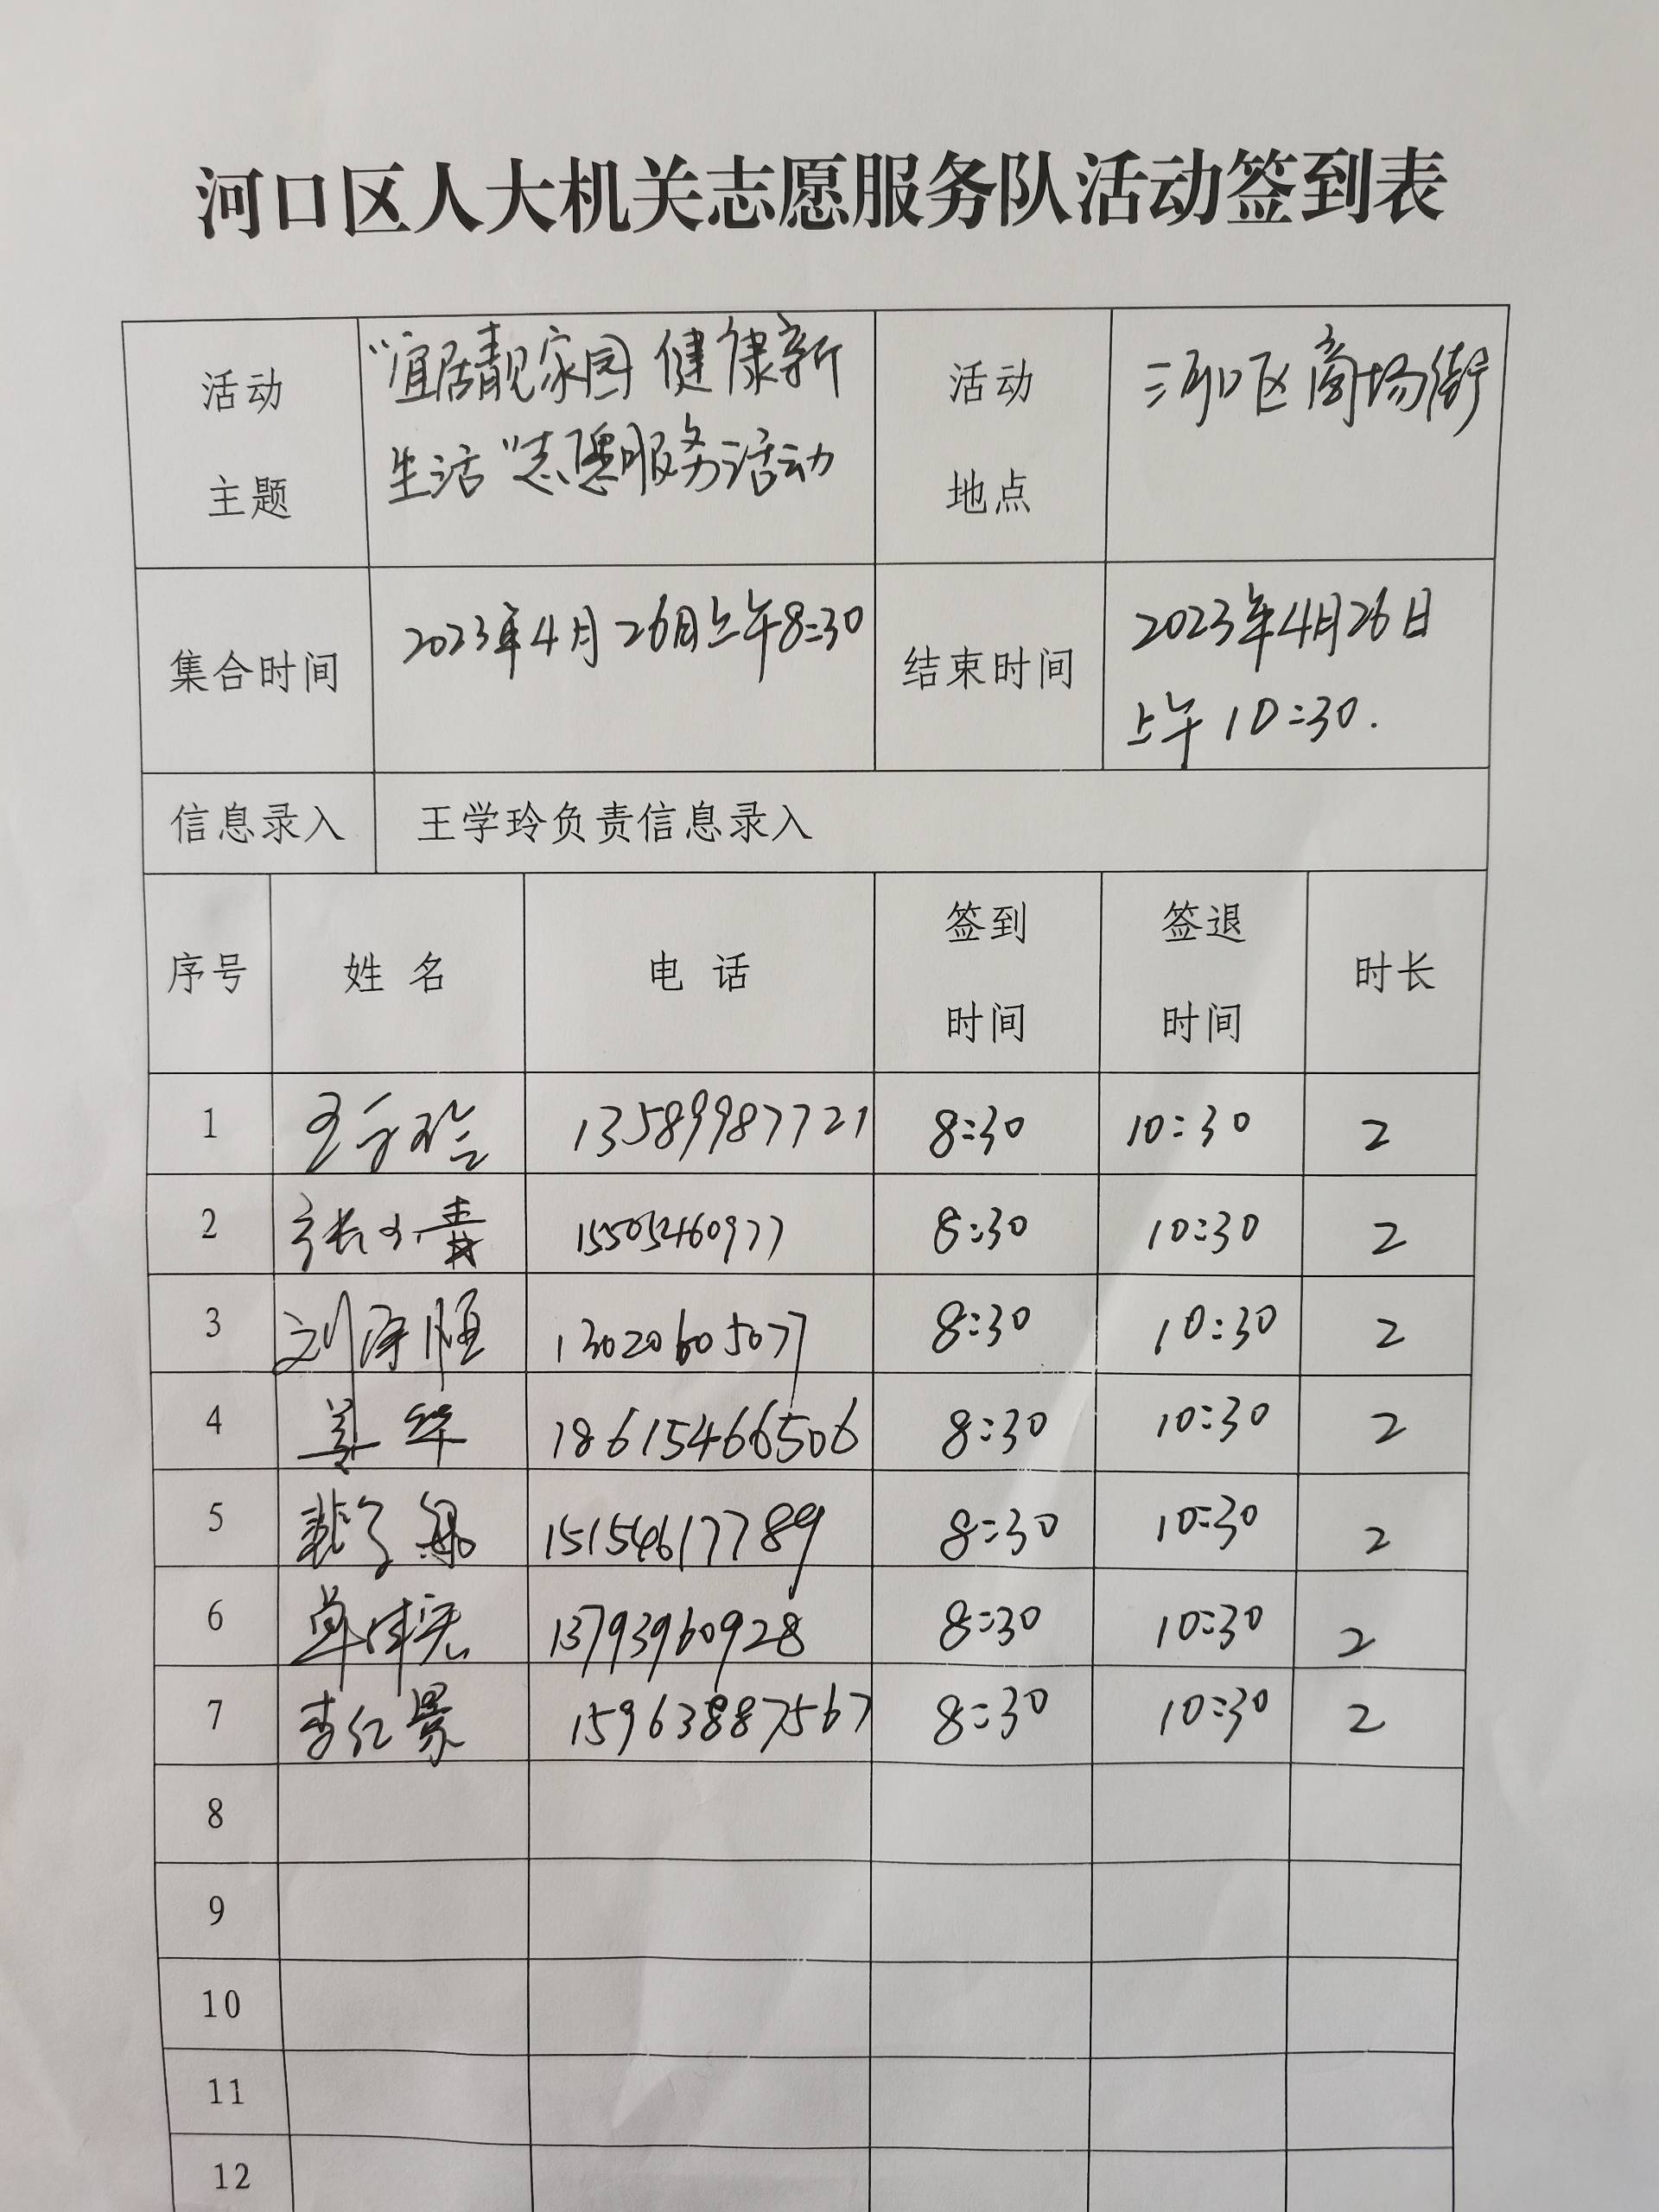 河口区人大机关志愿服务队活动签到表
活动主题 "宜居靓家园 健康新生活"志愿服务活动 活动地点 河口区商场街
集合时间 2023年4月26日上午8:30 结束时间 2023年4月26日上午10:30.
信息录入 王学玲负责信息录入
序号 姓名 电话 签到时间 签退时间 时长
1 王学玲 13589987721 8:30 10:30 2
2 张小青 15505460977 8:30 10:30 2
3 刘泽恒 13020605077 8:30 10:30 2
4 姜华 18615466506 8:30 10:30 2
5 15154617789 8:30 10:30 2
6 13793960928 8:30 10:30 2
7 李红景 15963887567 8:30 10:30 2
8
9
10
11
12